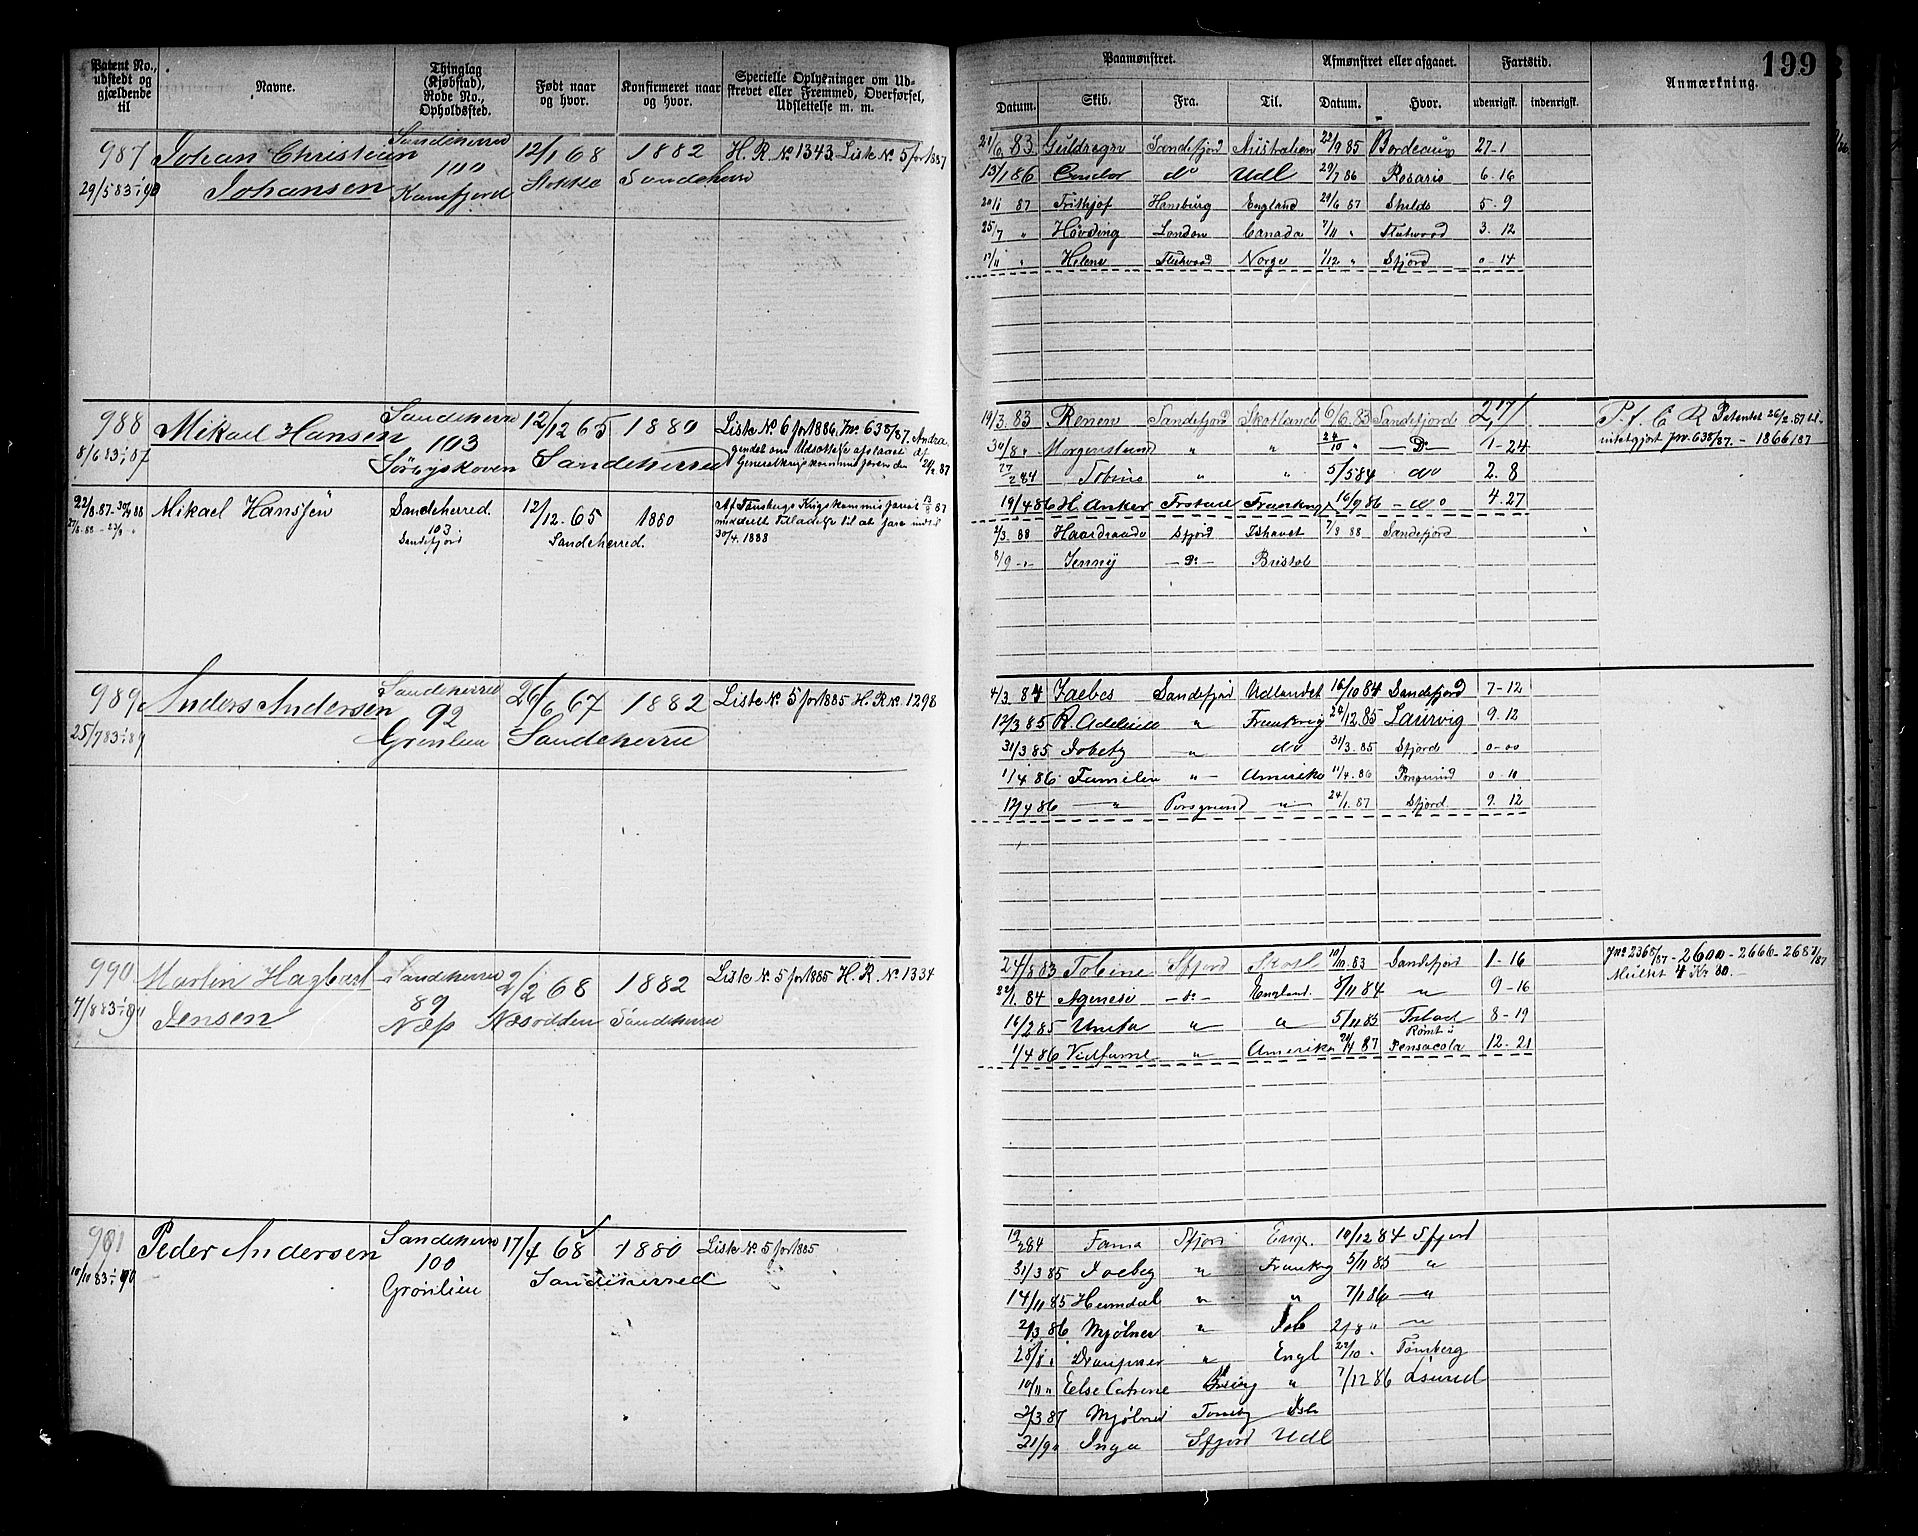 Patent No., udstedt og gjældende til
Navne.
Thinglag (Kjøbstad), Rode No., Opholdssted.
Født naar og hvor.
Konfirmeret naar og hvor.
Specielle Oplysninger om Udskrevet eller Fremmed, Overførsel, Udslettelse m. m.
Paamønstret.
Afmønstret eller afgaaet.
Fartstid.
Anmærkning.
199
Datum. Skib. Fra. Til. Datum. Hvor. udenrigsk. indenrigsk.
987 Johan Christian Sandeherred 12/1 68 1882 H. R. No 1343. Liste No. 5 for 1887
29/5 83 Johansen 100 Kamfjord Stokke Sandeherred
21/6 83 Guldregn Sandefjord Australien 22/9 85 Bordeaux 27-1
15/1 86 Condor do Udl 29/7 86 Rosario 6-16
20/1 87 Frithjof Hamburg England 29/6 87 Shilds 5-9
25/7 " Høvding London Canada 7/11 " Fleetwood 3-12
17/11 " Helene Fleetwood Norge 1/12 " Sfjord 0-14
988 Mikael Hansen Sandeherred 12/12 65 1880 Liste No 6 for 1886. Jnr. 638/87. Andra.
8/6 83 - 87 103 Sandeherred
22/8.87-30/4 88 Mikael Hanssen Sandeherred. 12/12. 65 1880
103. Sandefjord Sandeherred. 30/4. 1888
19/3. 83 Renen Sandefjord Skotland 6/6. 83 Sandefjord 2,17
30/8 " Morgenstund " " 24/10 " -Do- 1-24
27/2 84 Tobine " " 5/5 84 do 2. 8
19/4 86 H. Anker Frankrig 16/9 86 - do 4-27
2/3. 88 Haardraade Sfjord Ishavet 7/8 88 Sandefjord
8/9 - " Jenny -Do- Bristol
P. f. C R Patentet 26/2-87 til-
intetgjort jnr. 638/87. - 1866/87
989 Anders Andersen Sandeherred 26/6 67 1882 Liste No. 5 for 1885 H. R No. 1298
25/7 83 - 89 92 Grønlien Sandeherred
4/3. 84 Zaebes Sandefjord Udlandet 16/10 84 Sandefjord 7-12
12/3 85 R. " Frankrig 24/12. 85 Laurvig 9. 12
31/3. 85 " do 31/3. 85 Sfjord 0-00
1/4 86 Familien " Amerika 11/4. 86 Porsgrund 0-10
12/4 86 " Porsgrund " 24/1. 87 Sfjord 9. 12
990 Martin Hagbart Sandeherred 2/2 68 1882 Liste No. 5 for 1885 H. R. No. 1334
7/8 83 Jensen 89 Næs Næsodden Sandeherred
24/8 83 Tobine Sfjord Skotl 10/10. 83 Sandefjord 1-16
22/1. 84 Agnesi -do- England. 8/11 84 " 9-16
16/2 85 Unita " " 5/11 85 8-19
1/4 86 " Amerika 20/4 87 Rømt i Pensacola 12-21
Jno 2365/87 - 2600 - 2666 - 2687/87
Mulkt 4 Kr 80.
991 Peder Andersen Sandeherred 17/4 68 1880 Liste No. 5 for 1885
10/10 83 - 90 100 Grønlien Sandeherred
19/2 84 Fama Sfjord Engl. 10/12 84 Sfjord
31/3 85 " Frankrig 5/11 85 "
14/11 85 Heimdal " " 7/1 86 "
2/3. 86 Mjølner " Ish 2/8 " "
28/8 " Draupner " Engl 22/10 " Tønsberg
10/11 " Else Catrine " 7/12 86
2/3 87 Mjølner Tønsbg Ish
21/9 " Inga Sfjord Udl